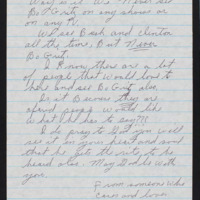 Why is it We Never see
Bo Gritz on any shows or
on any TV.
We see Bush and Clinton
all the time, But Never
Bo Gritz.
I know there are a lot
of people that would love to
hear and see Bo Gritz also.
Is it Because they are
afraid people would like
what he has to say?
I do pray to God you will
see it in your heart and soul
that he gets the right to be
heard also. May God be with
you.
From someone who
cares and loves